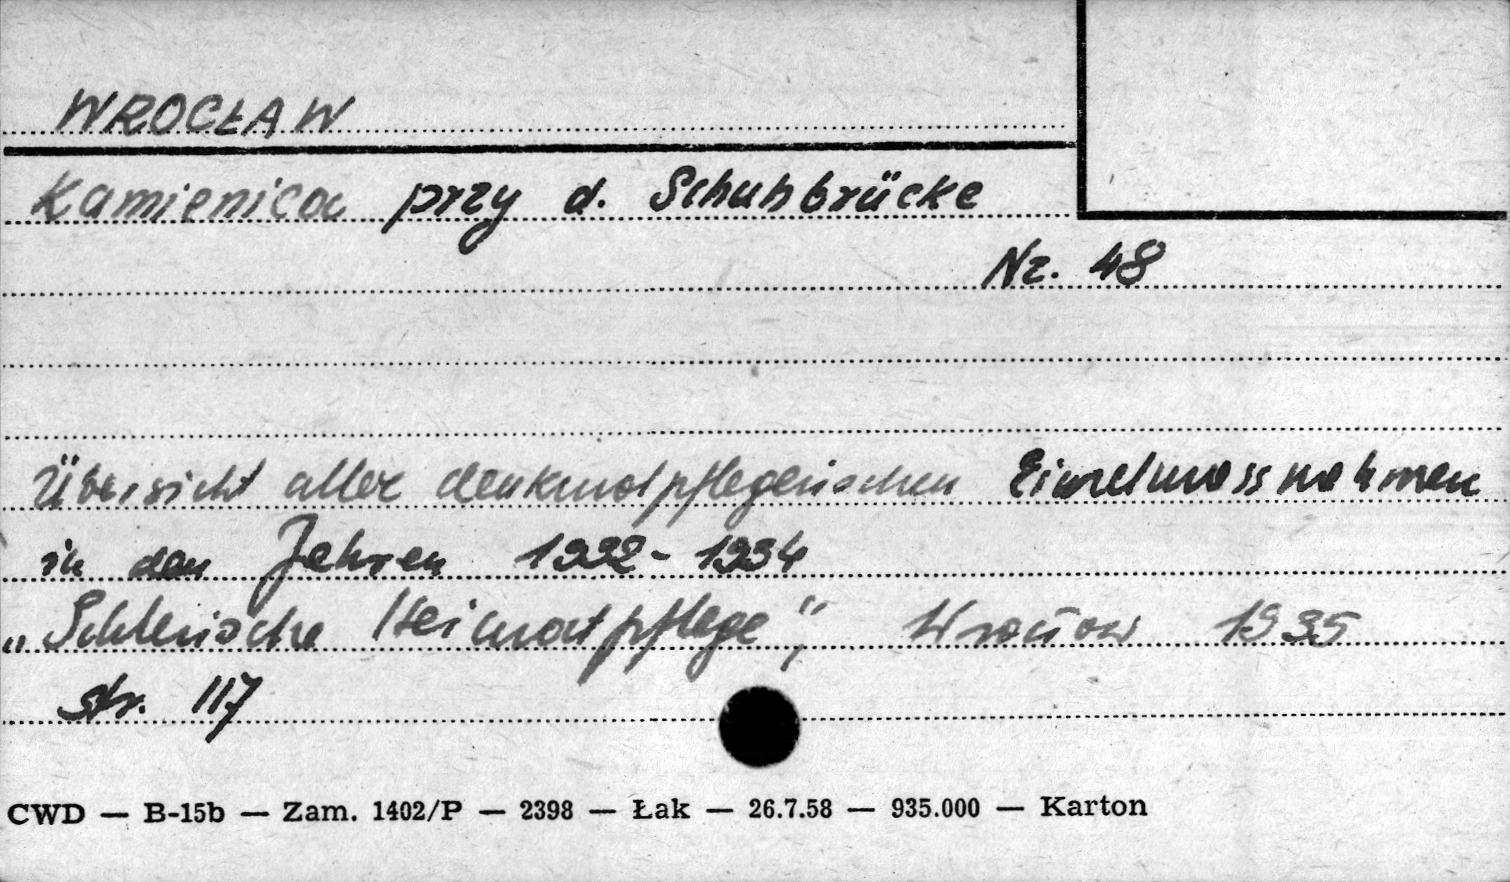 WROCŁAW
Kamienica przy d. Schuhbrücke
Nr. 48
Übersicht aller denkmalpflegerischen Einzelmassnahmen
in den Jahren 1932-1934
„Schlesische Heimatpflege", Wrocław 1935
str. 117
CWD — B-15b — Zam. 1402/P — 2398 — Łak — 26.7.58 — 935.000 — Karton